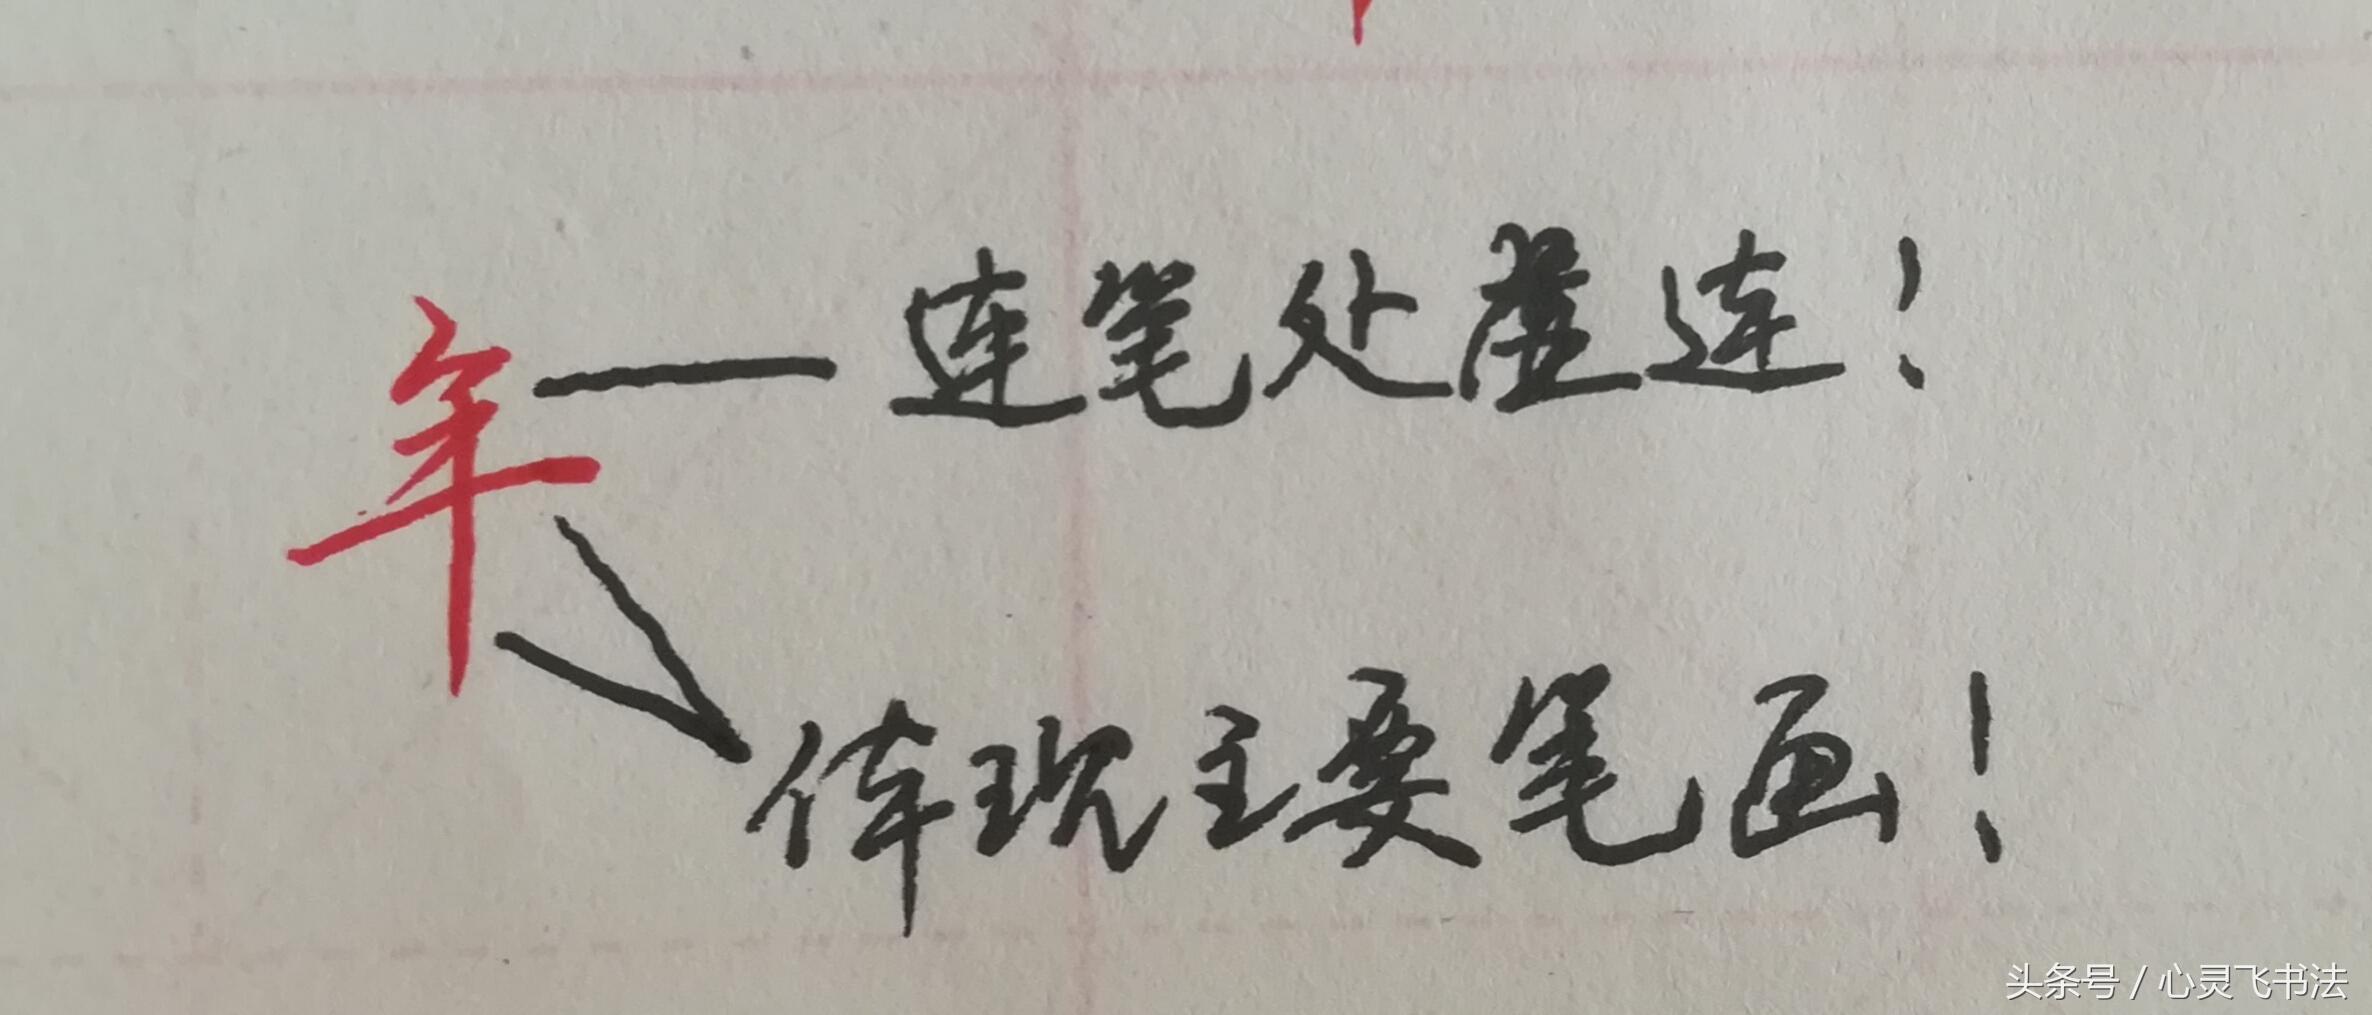 年
连笔处虚连！
体现主要笔画！
头条号 / 心灵飞书法